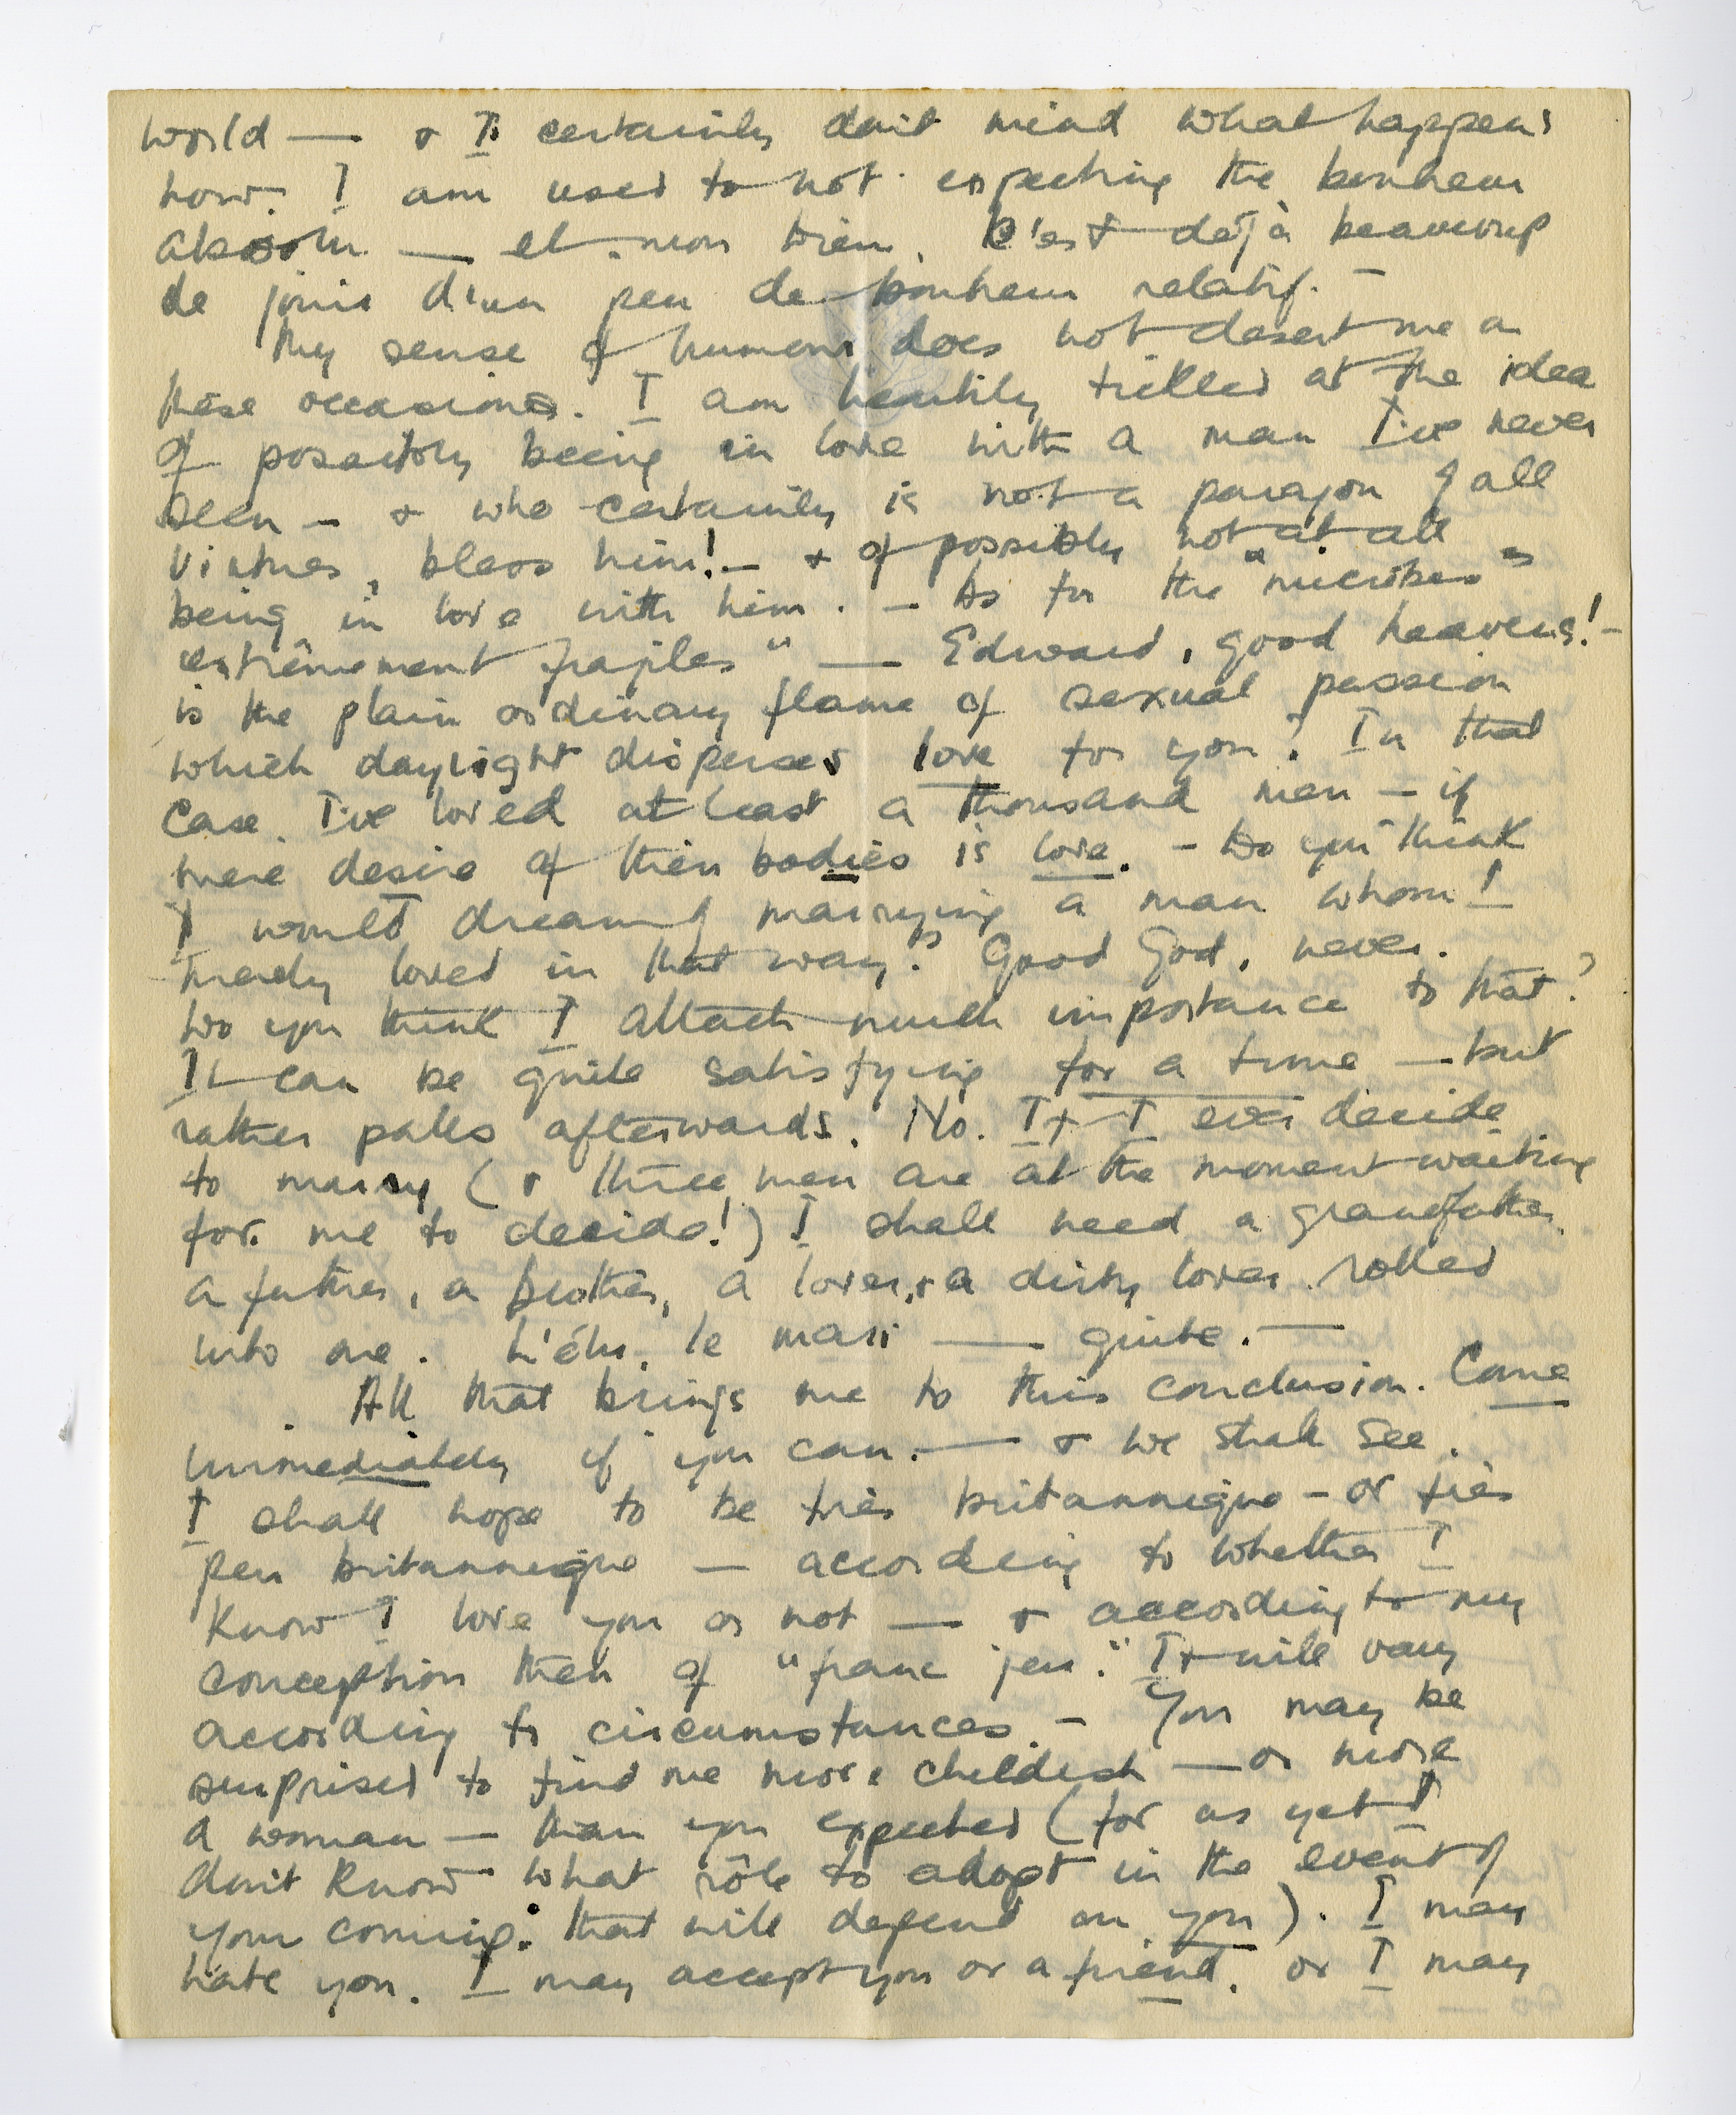 world — & I certainly don't mind what happens
now. I am used to not expecting the bonheur
absolu — et mon bien. C'est déjà beaucoup
de jouir d'un peu de bonheur relatif. —
My sense of humour does not desert me on
these occasions. I am heartily tickled at the idea
of possibly being in love with a man I've never
seen — & who certainly is not a paragon of all
virtues, bless him! — & of possibly not at all
being in love with him. — As for the "microbes
extrêmement fragiles" — Edward, good heavens! —
is the plain ordinary flame of sexual passion
which daylight disperses love for you? In that
case I've loved at least a thousand men — if
mere desire of their bodies is love. — Do you think
I would dream of marrying a man whom I
merely loved in that way? Good God, never.
Do you think I attach much importance to that?
It can be quite satisfying for a time — but
rather palls afterwards. No. If I ever decide
to marry (& three men are at the moment waiting
for me to decide!) I shall need a grandfather,
a father, a brother, a lover, & a dirty lover rolled
into one. L'élu, le mari — quite. —
All that brings me to this conclusion. Come
immediately if you can. — & we shall see.
I shall hope to be très britannique — or très
peu britannique — according to whether I
know I love you or not — & according to my
conception then of "franc jeu." It will vary
according to circumstances. — You may be
surprised to find me more childish — or more
a woman — than you expected (for as yet I
don't know what rôle to adopt in the event of
your coming: that will depend on you). I may
hate you. I may accept you as a friend, or I may